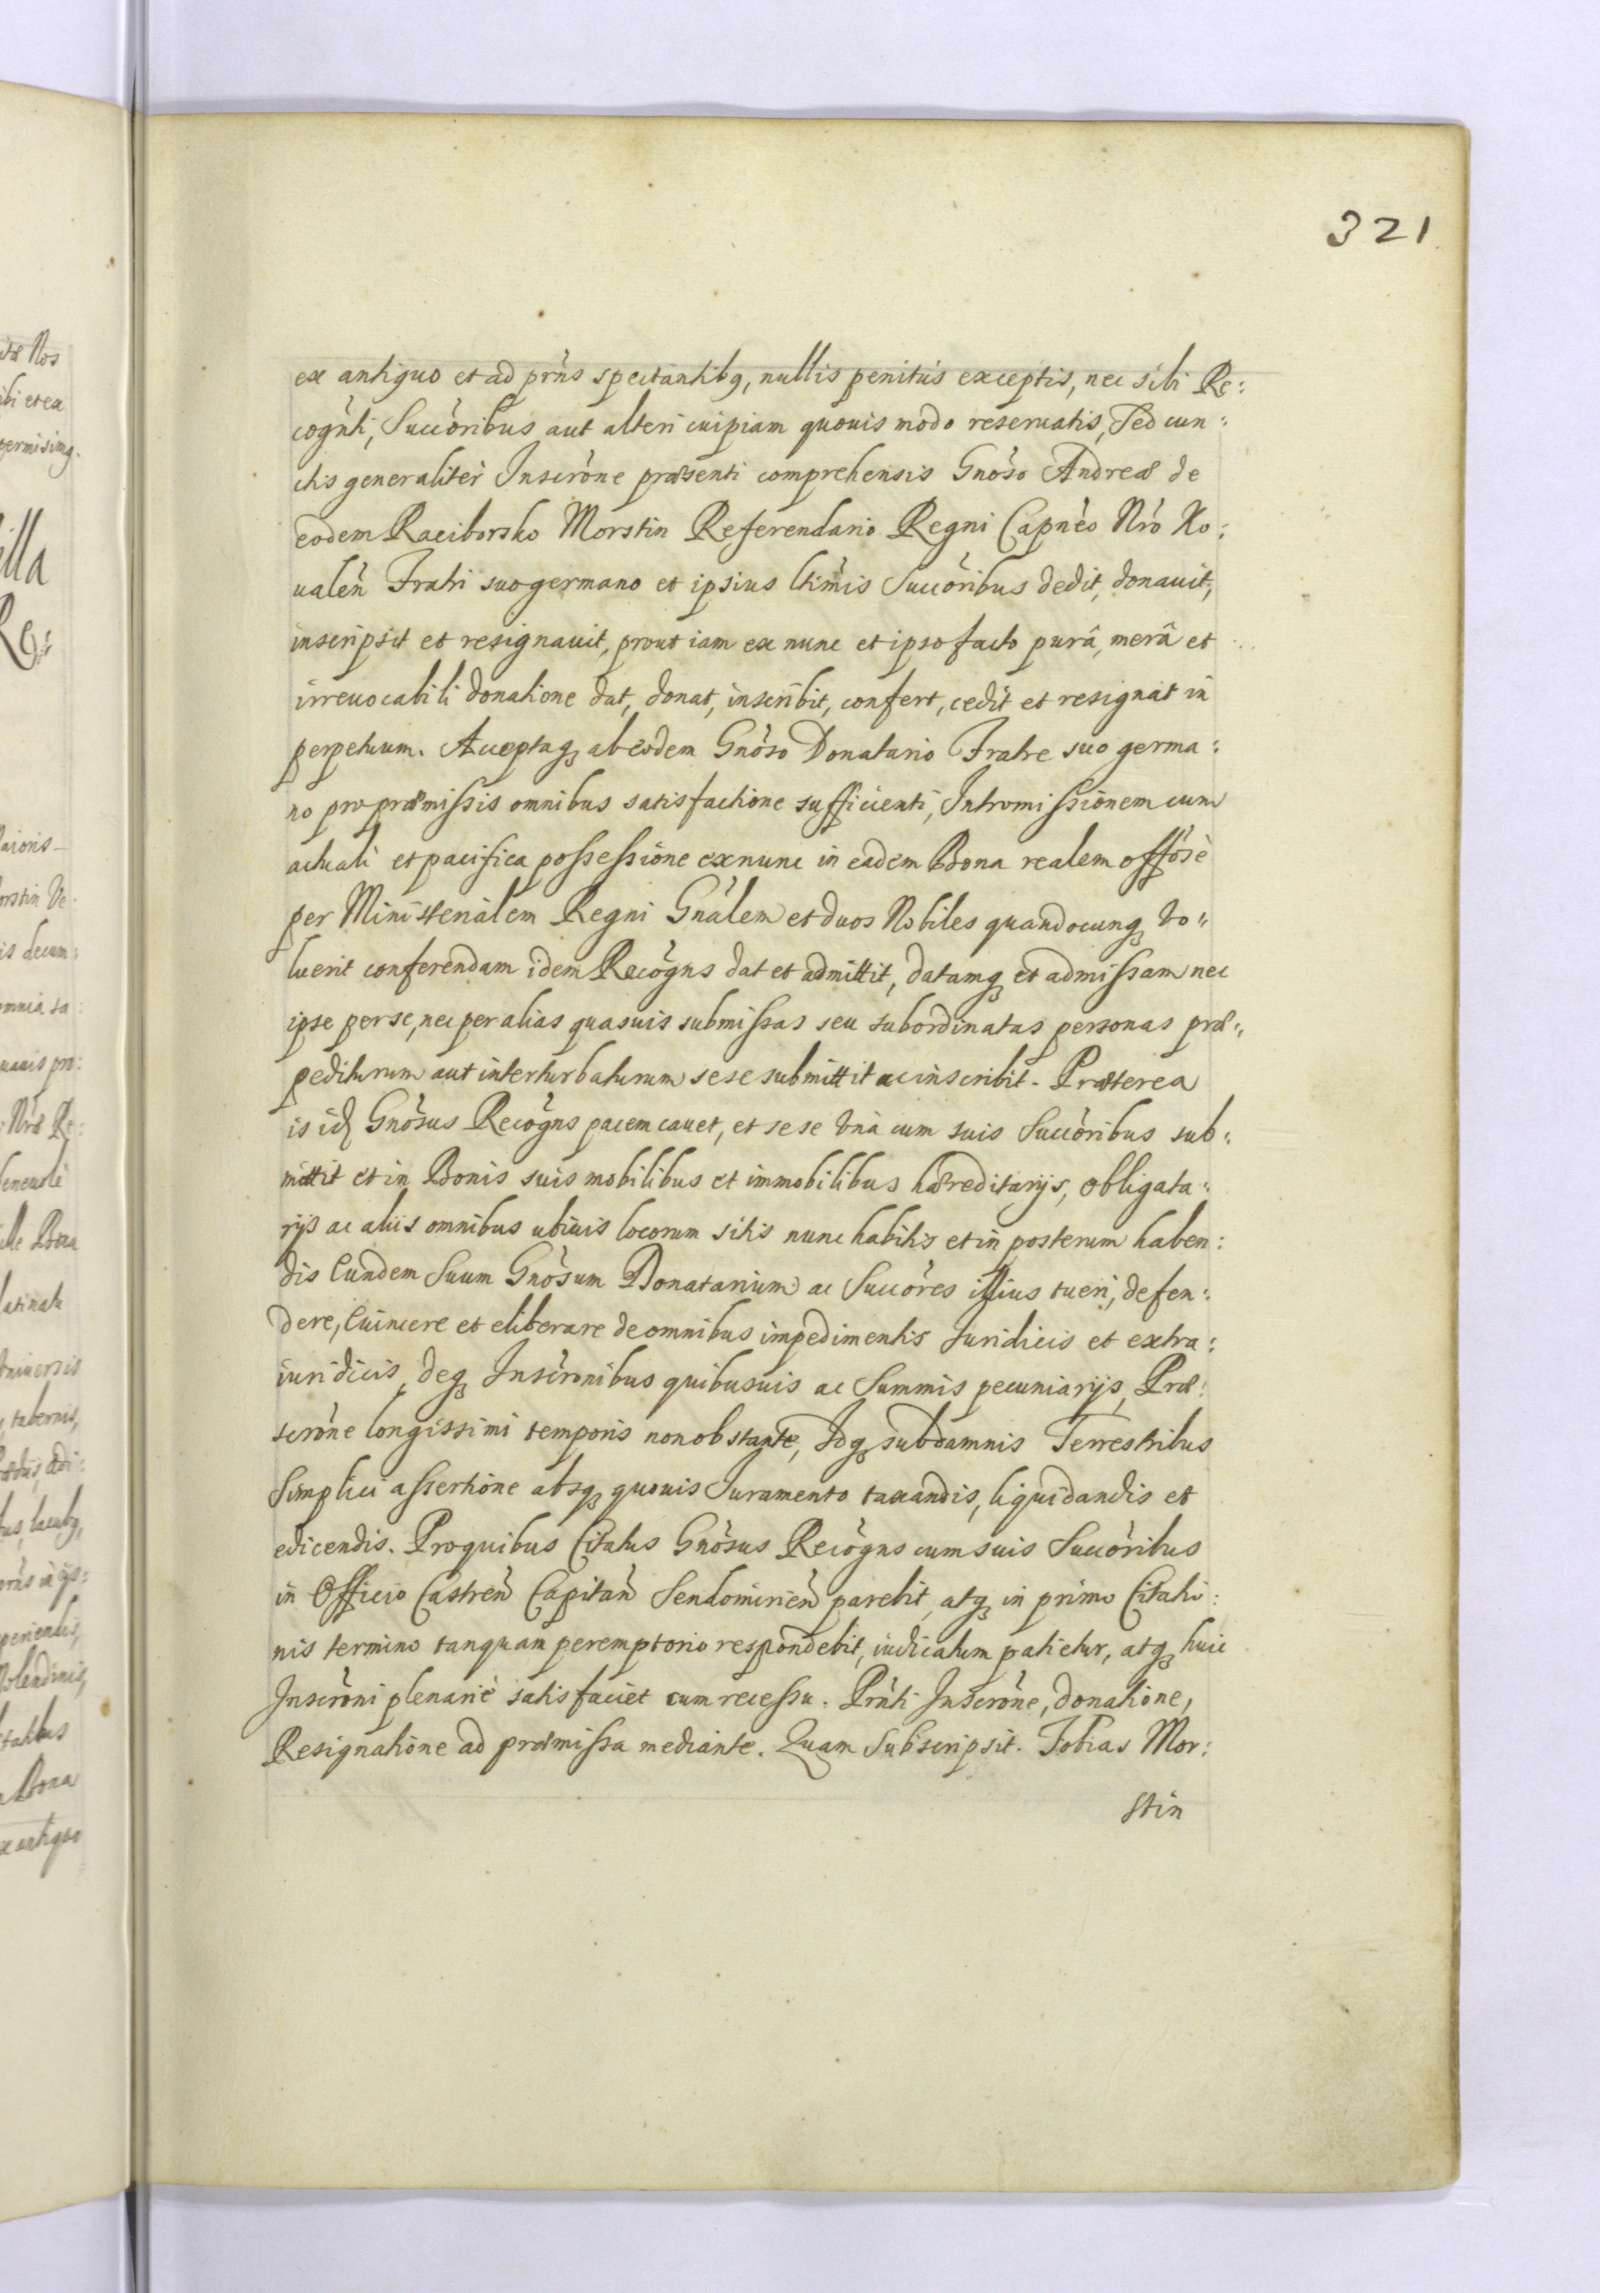 321
ex antiquo et ad prńs spectantibq, nullis penitus exceptis, nec sibi Re:
cogńti, Succoribus aut alteri cuipiam quouis modo reseruatis, Sed cun:
ctis generaliter Inscrone præsenti comprehensis Gnoso Andreæ de
eodem Raciborsko Morstin Referendario Regni Capneo Nro Ko:
ualeń Fratri suo germano et ipsius ltimis Succoribus dedit, donauit,
inscripsit et resignauit, prout iam ex nunc et ipso facto purâ, merâ et
irreuocabili donatione dat, donat, inscribit, confert, cedit et resignat in
perpetuum. Acceptaq ab eodem Gnoso Donatario Fratre suo germa:
no pro præmissis omnibus satisfactione sufficienti, Intromissionem cum
actuali et pacifica possessione ex nunc in eadem Bona realem offose
per Ministerialem Regni Gnalem et duos Nobiles quandocunq vo:
luerit conferendam idem Recogns dat et admittit, datamq et admissam nec
ipse per se, nec per alias quasuis submissas seu subordinatas personas præ:
pediturum aut interturbaturum sese submittit ac inscribit. Præterea
is id Gnosus Recogns pacem cauet, et sese vnà cum suis Succoribus sub:
mittit et in Bonis suis mobilibus et immobilibus hæreditarijs, obligata:
rijs ac aliis omnibus ubiuis locorum sitis nunc habitis et in posterum haben:
dis Eundem Suum Gnosum Donatarium ac Succores illius tueri, defen:
dere, Euincere et eliberare de omnibus impedimentis Iuridicis et extra:
iuridicis, deq Inscronibus quibusuis ac Summis pecuniarijs, Præ:
scrone longissimi temporis non obstante, Idq sub damnis Terrestribus
Simplici assertione absq quouis Iuramento taxandis, liquidandis et
edicendis. Pro quibus Citatus Gnosus Recogns cum suis Succoribus
in Officio Castreń Capitań Sendomirień parebit, atq in primo Citatio:
nis termino tanquam peremptorio respondebit, iudicatum patietur, atq huic
Inscroni plenariè satisfaciet cum recessu. Prńti Inscrone, donatione,
Resignatione ad præmissa mediante. Quam Subscripsit. Tobias Mor:
stin